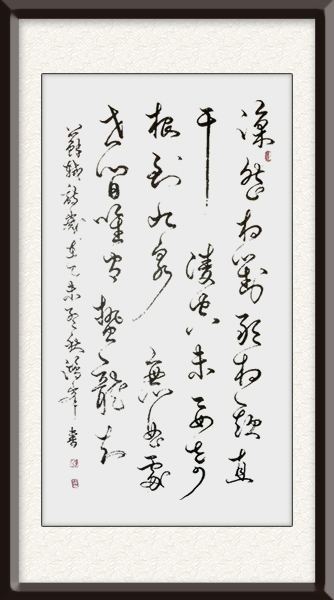 凜然相對敢相欺直
干凌空未要奇
根到九泉無曲處
世間唯有蟄龍知
蘇軾詩歲在乙未秋書